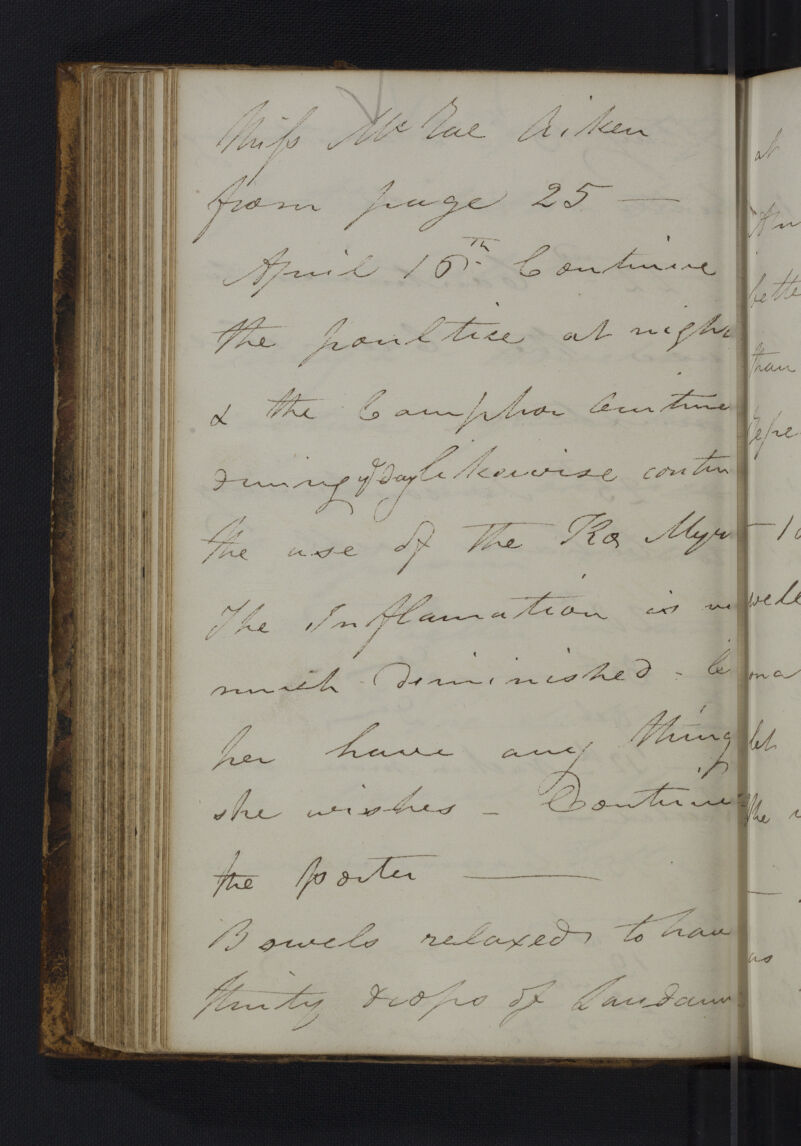 Miss McRae Aiken
from page 25 —
April 16th. Continue
the poultice at night
& the Camphor
during ye day likewise contin
the use of the Myrr
The Inflamation is
much diminished -
her have any thing
she wishes - Continue
the porter —
Bowels relaxed to have
thirty drops of Laudanu
at
bette
than
Repe
well
let
the
—
as